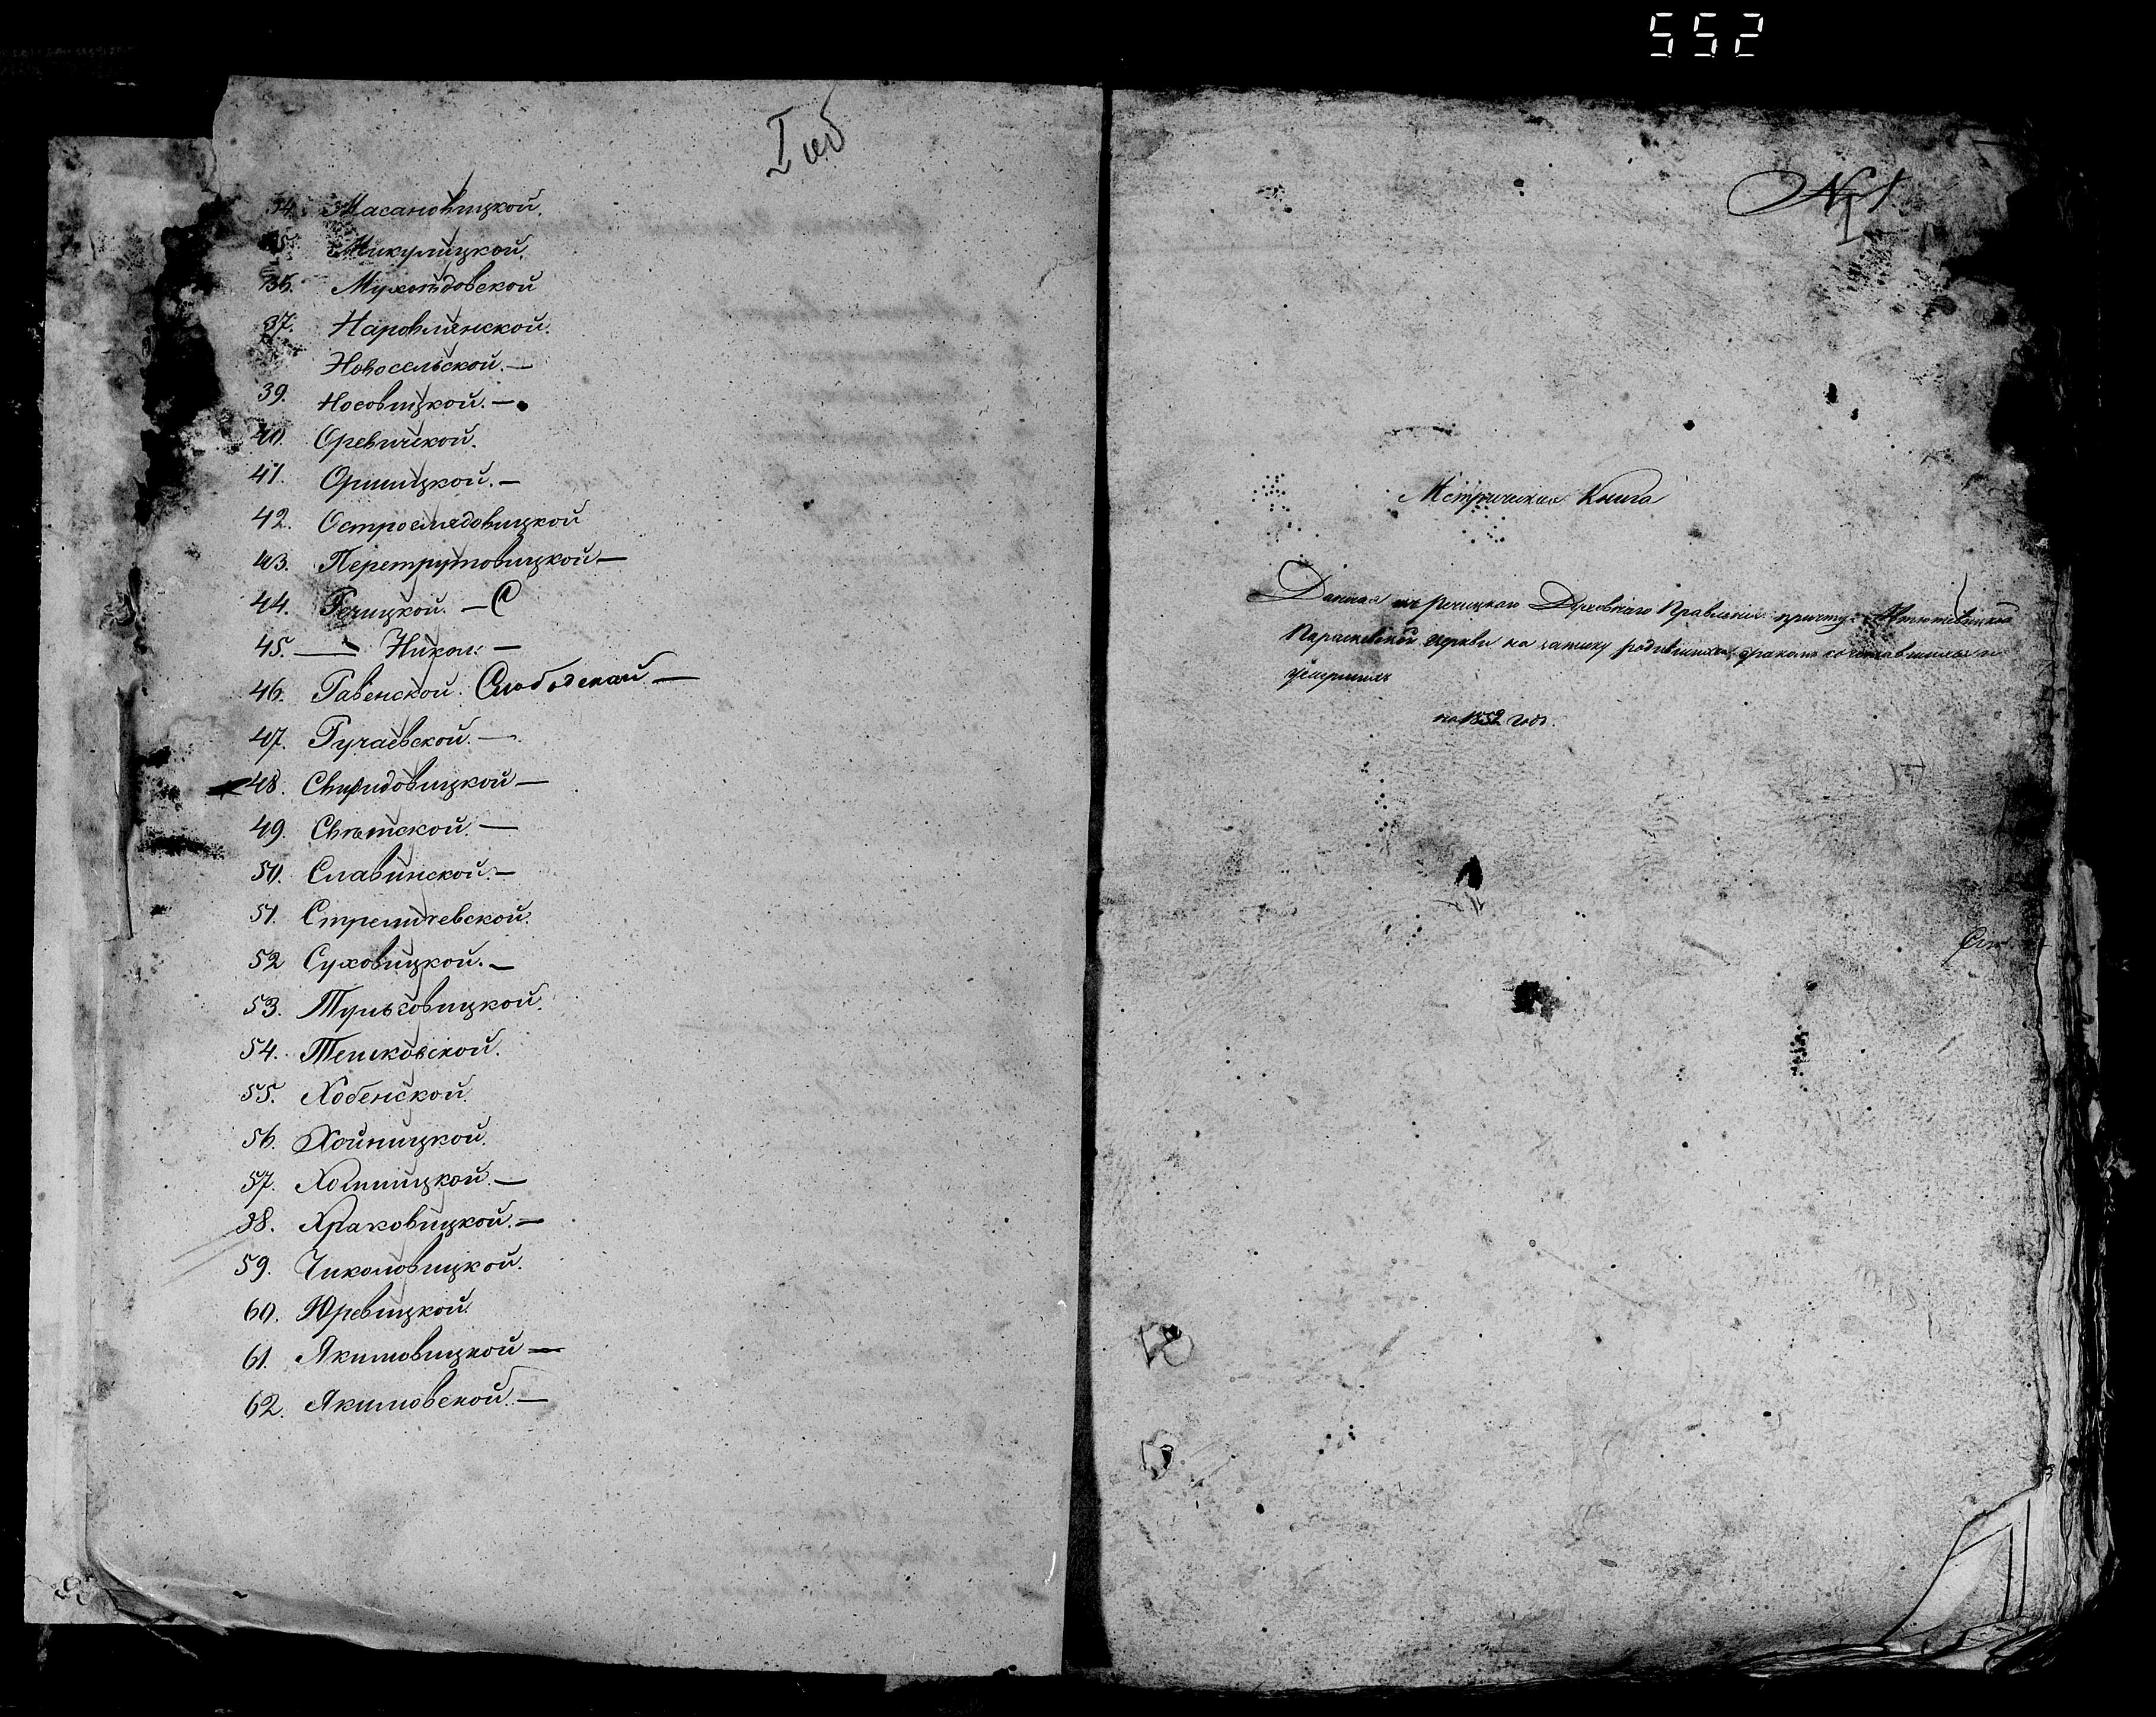 552
I об
34. Масановицкой.
35. Микулицкой.
36. Мухоѣдовской
37. Наровлянской.
Новосельской. —
39. Носовицкой. —
40. Оревичской.
41. Оршицкой. —
42. Острогледовицкой
43. Перетрутовицкой —
44. Речицкой. — С
45. — Никол: —
46. Равенской. Слободской —
47. Ручаевской. —
48. Свиридовицкой —
49. Свѣтской. —
50. Славинской. —
51. Стреличевской.
52 Суховицкой. —
53. Тульговицкой.
54. Тешковской.
55. Хобенской.
56. Хойницкой.
57. Холмицкой. —
58. Храковицкой. —
59. Чиколовицкой.
60. Юревицкой.
61. Якимовицкой —
62. Якимовской. —
№ 1
Метрическая Книга
Данная изъ Речицкаго Духовнаго Правления причту
Параскевской церкви на записку родившихся, бракомъ сочетавшихся и
умершихъ
на 1852 годъ.